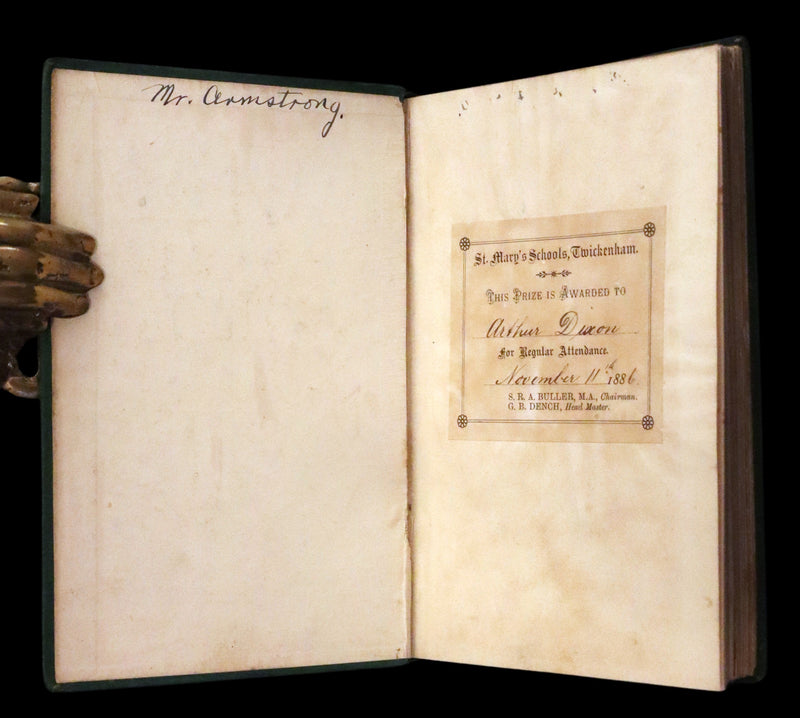 Mr. Armstrong.
St. Mary's Schools, Twickenham.
THIS PRIZE IS AWARDED TO
Arthur Dixon
For Regular Attendance.
November 11th 1886.
S. R. A. BULLER, M.A., Chairman.
G. B. DENCH, Head Master.